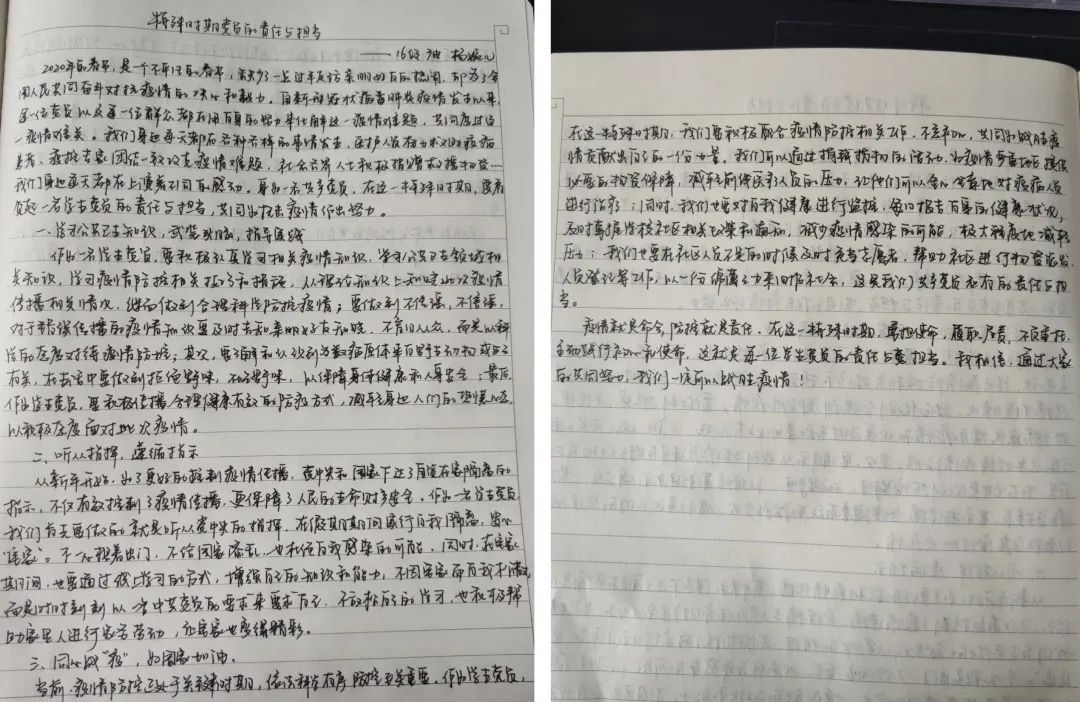 特殊时期党员的责任与担当
——16级 油
2020年的春节,是一个不平凡的春节,缺少了一点过年走访亲朋好友的热闹,却多了全
国人民共同奋斗对抗疫情的决心和毅力。自新型冠状病毒肺炎疫情发生以来,
每一位党员以及每一位群众都在用自身的努力来化解这一疫情难题,共同度过这一
疫情难关。我们身边每天都有各种各样的事情发生,医护人员在全力救助疫病
患者,疫控专家团结一致攻克疫情难题,社会各界人士积极捐赠救援物资……
我们身边每天都在上演着不同的感动。身为一名共产党员,在这一特殊时期,要肩
负起一名学生党员的责任与担当,共同为抗击疫情作出努力。
一、学习公共卫生知识,武装头脑,指导实践
作为一名学生党员,要积极认真学习相关疫情知识,学习公共卫生领域相
关知识,学习疫情防控相关指示和措施,从理论知识上知晓此次疫情
传播相关情况,继而做到合理科学防控疫情;要做到不信谣,不传谣,
对于错误传播的疫情知识要及时告知亲朋好友知晓,不盲目从众,而是以科
学的态度对待疫情防控;其次,要了解和认识到多数病原体来自野生动物或与之
有关,在生活中要做到拒绝野味,不吃野味,以保障身体健康和人身安全;最后,
作为学生党员,要积极传播合理健康有效的防疫方式,减轻身边人们的恐慌心态,
以积极态度面对此次疫情。
二、听从指挥,遵循指示
从新年开始,为了更好的控制疫情传播,党中央和国家下达了自觉在家隔离的
指示,不仅有效控制了疫情传播,更保障了人民的生命财产安全。作为一名学生党员,
我们首先要做的事就是听从党中央的指挥,在假期期间实行自我隔离,安心
“宅家”。不心想着出门,不给国家添乱,也杜绝自我感染的可能,同时,在宅家
期间,也要通过线上学习的方式,增强自己的知识和能力,不因宅家而自我松懈,
而是时时刻刻以一名中共党员的要求来要求自己,不放松自己的学习,也积极帮
助家里人进行家务劳动,让宅家也变得精彩。
三、同心战“疫”,为国家加油。
当前,疫情防控正处于关键时期,依法科学有序防控至关重要,作为学生党员,
在这一特殊时期,我们要积极配合疫情防控相关工作,不忘初心,共同为战胜疫
情贡献出自己的一份力量。我们可以通过捐钱捐物的活动,为疫情多重地区提供
必要的物资保障,减轻前线医护人员的压力,让他们可以全心全意地对疫病人员
进行治疗;同时,我们也要对自我健康进行监控,每日报告自身的健康状况,
及时遵循学校社区相关政策和通知,减少疫情感染的可能,极大程度地减轻
压力;我们也要在社区人员不足的时候及时充当志愿者,帮助社区进行物资发放、
人员登记等工作,以一份绵薄之力来回馈社会,这是我们共产党员应有的责任与担
当。
疫情就是命令,防控就是责任,在这一特殊时期,要担使命,履职尽责,不负重托,
主动践行初心和使命,这就是每一位学生党员的责任与要担当。我相信,通过大家
的共同努力,我们一定可以战胜疫情